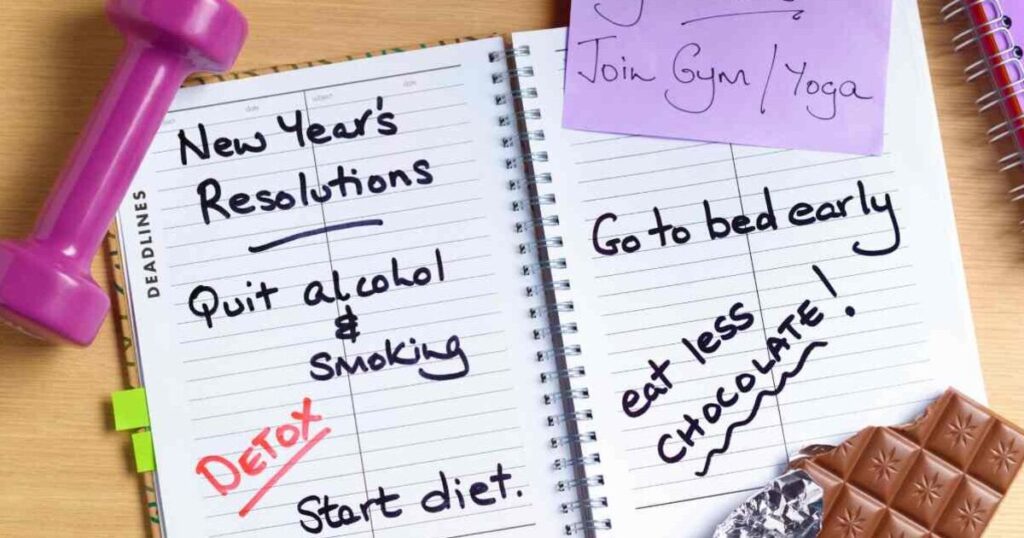 date
subject
date
DEADLINES
New Year's
Resolutions
Quit alcohol
&
smoking
DETOX
Start diet.
Join Gym/Yoga
Go to bed early
eat less
CHOCOLATE!